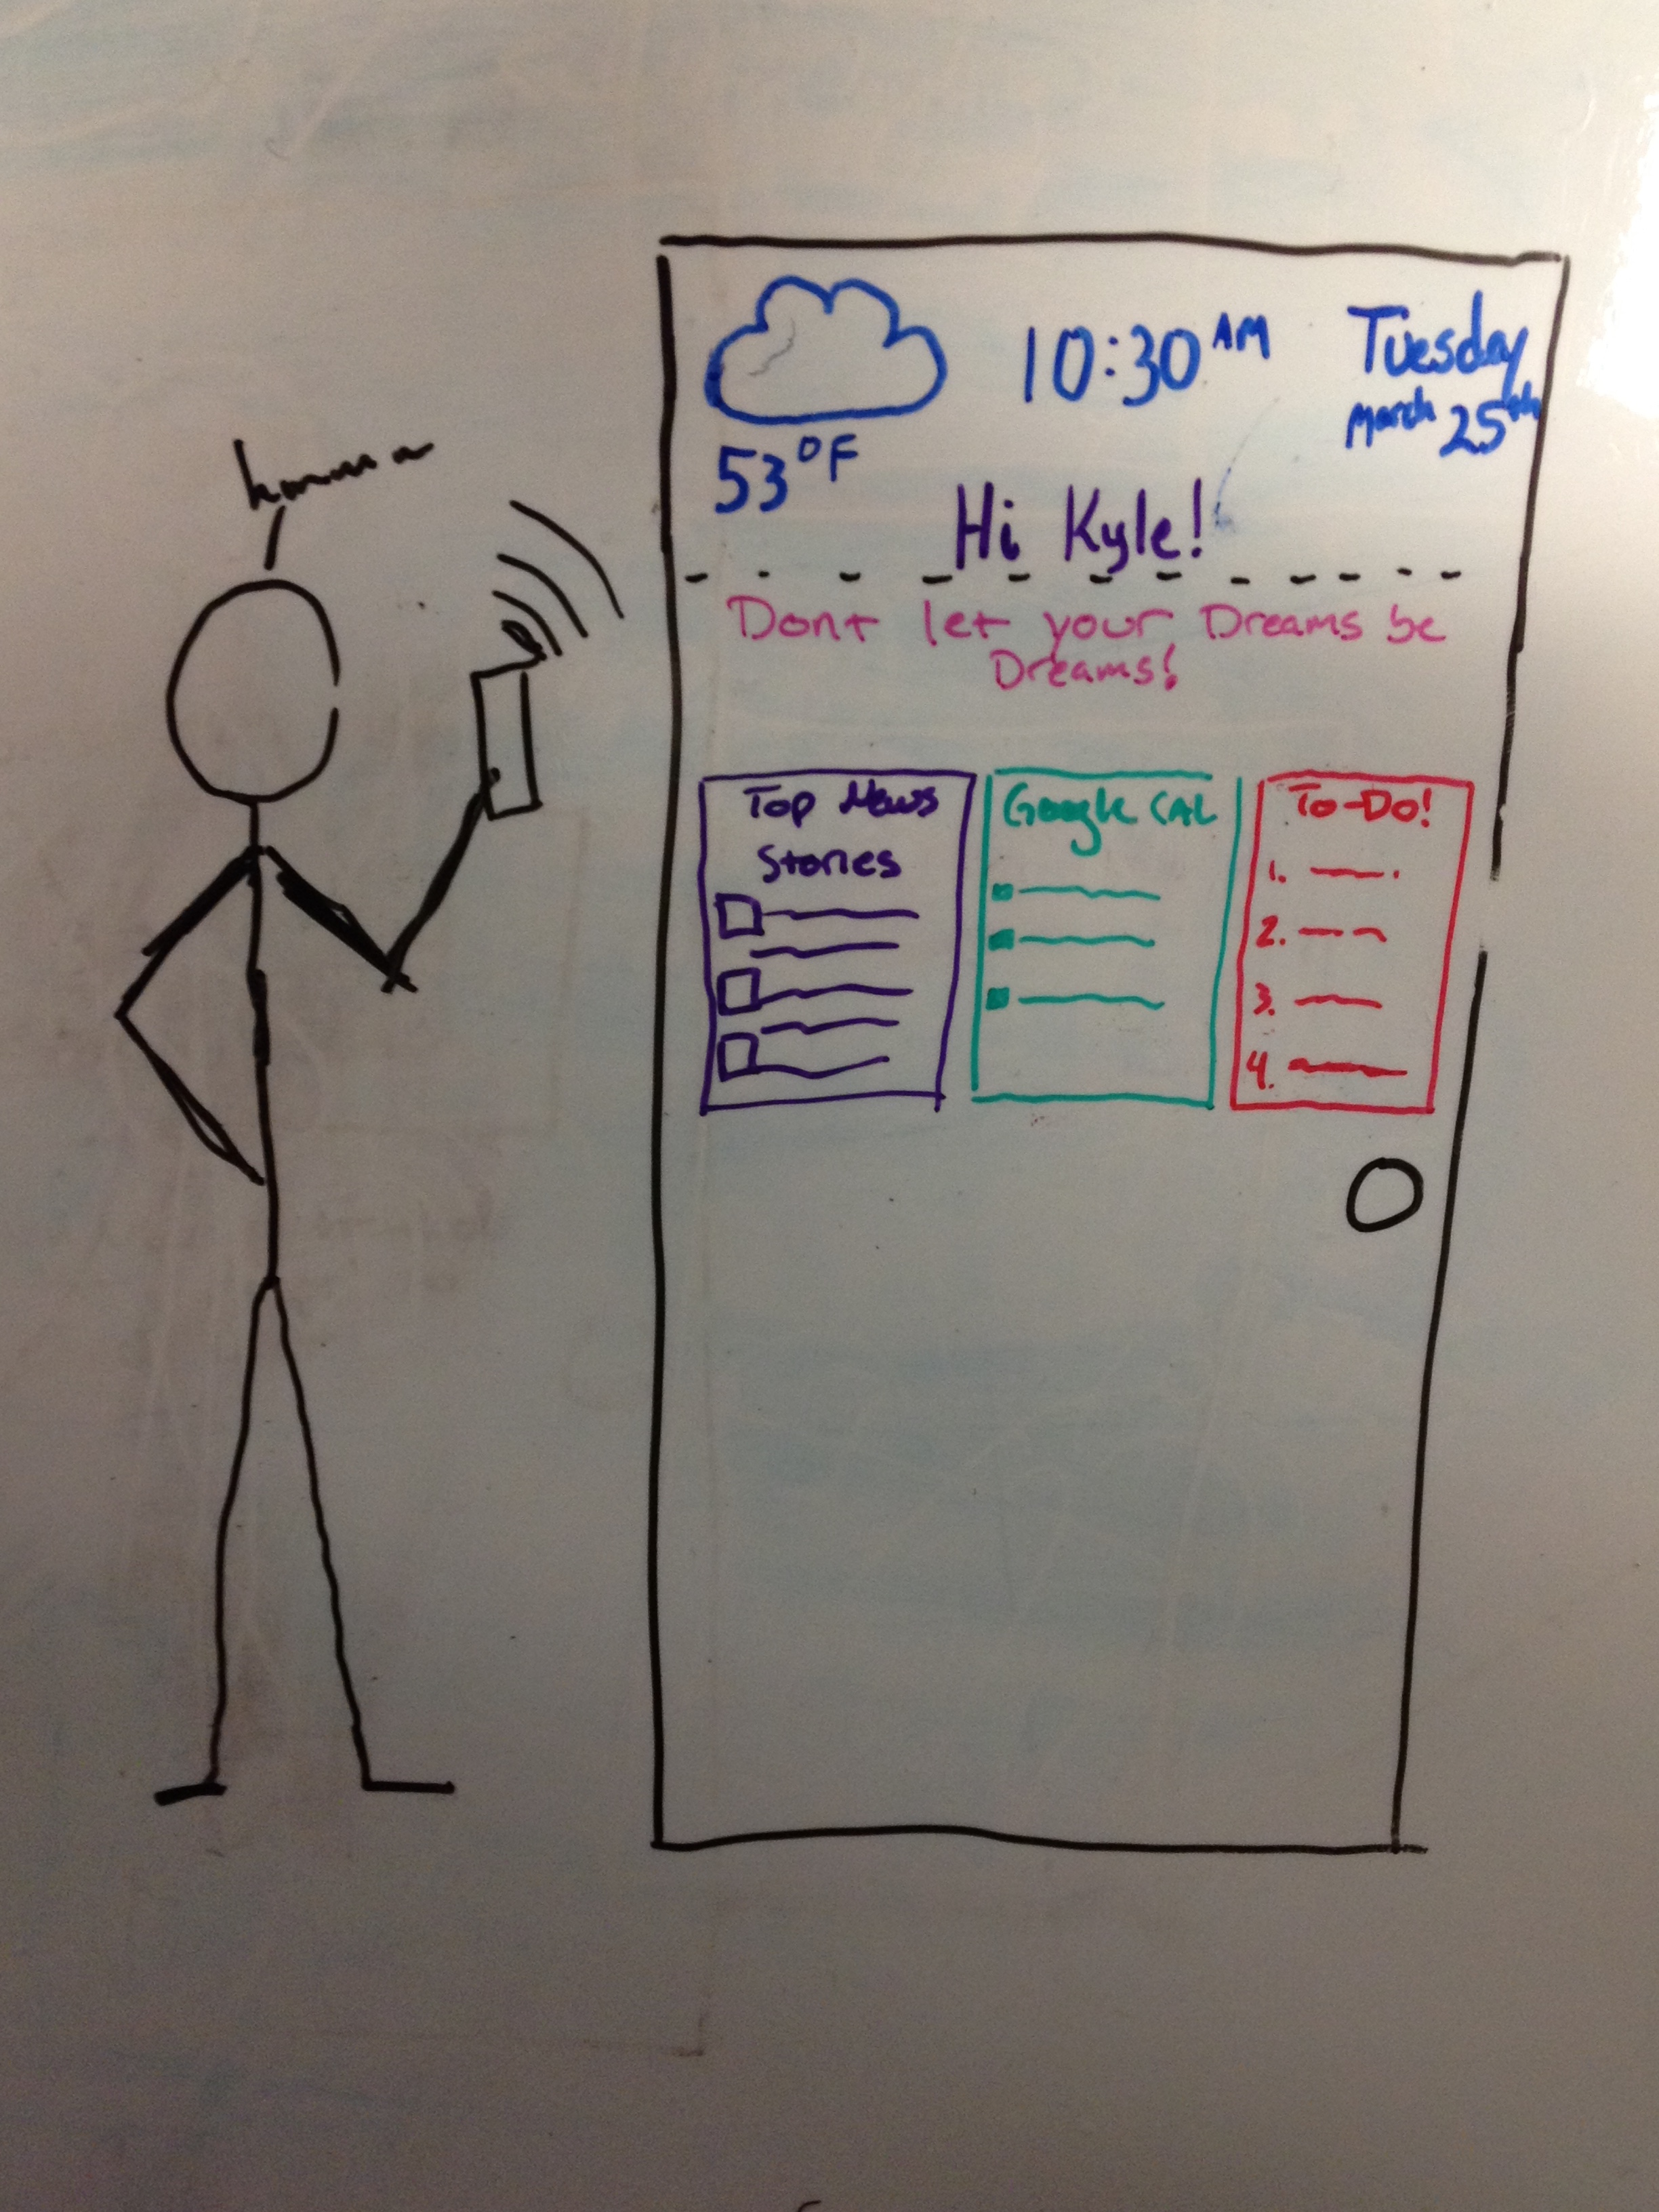 10:30 AM
Tuesday
March 25th
53°F
Hi Kyle!
Dont let your Dreams be
Dreams!
Top News
Stories
Google CAL
To-Do!
1.
2.
3.
4.